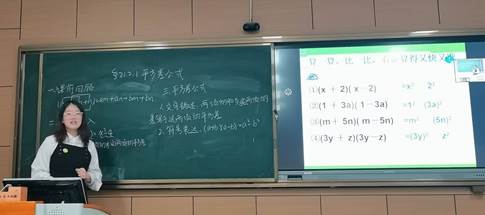 §21.2.1 平方差公式
一、课前回顾
=am+an+bm+bn
二、
三、平方差公式
1.文字叙述：两数的和与这两数的
差等于这两数的平方差
2.符号表达：(a+b)(a-b)=a²-b²
算一算，比一比，看 算得又快又
(1)(x + 2)(x − 2) =x² 2²
(2)(1 + 3a)(1 − 3a) =1² (3a)²
(3)(m + 5n)(m − 5n) =m² (5n)²
(4)(3y + z)(3y − z) =(3y)² z²